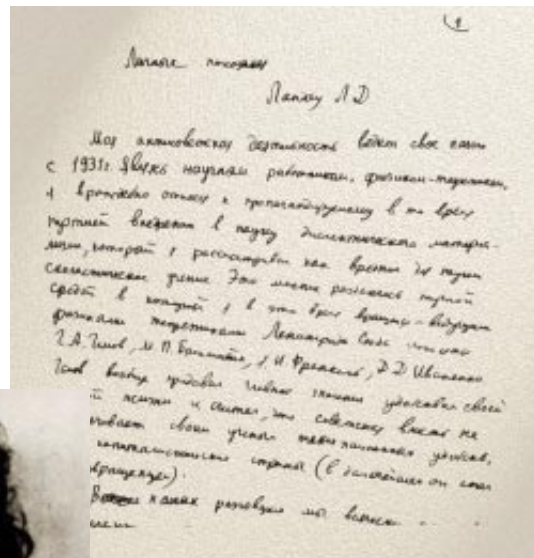 1
Личные показания
Ландау Л Д
Моя антисоветская деятельность ведет свое начало
с 1931г. Будучи научным работником, физиком-теоретиком,
я враждебно отнесся к пропагандируемому в то время
партией введению в науку диалектического материа-
лизма, который я рассматривал как вредное для науки
схоластическое учение Это мнение разделялось научной
средой в которой я в это время вращался - ведущими
физиками теоретиками Ленинграда
Г. А. Гамов, М. П. Бронштейн, Я. И. Френкель, Д. Д. Иваненко
Гамов вообще условия своей
и считал, что советская власть не
своим ученым таких условий,
капиталистические страны (в дальнейшем он стал
).
В наших разговорах мы